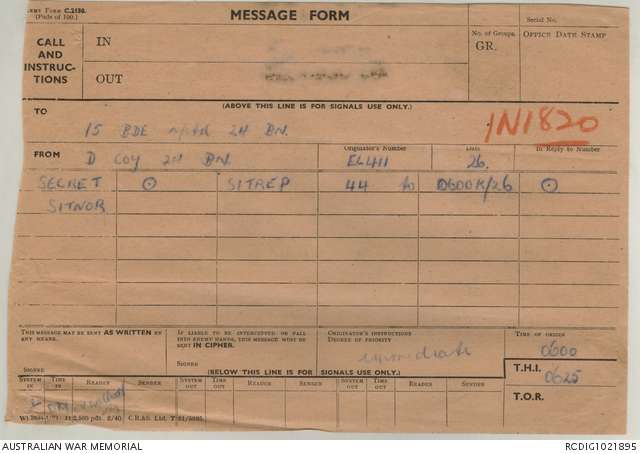 ARMY FORM C.2136.
(Pads of 100.)
MESSAGE FORM
Serial No.
CALL AND INSTRUCTIONS
IN
OUT
No. of Groups.
GR.
OFFICE DATE STAMP
(ABOVE THIS LINE IS FOR SIGNALS USE ONLY.)
TO
15 BDE 24 BN.
1N1820
FROM
D COY 24 BN.
Originator's Number
EL411
Date
26.
In Reply to Number
SECRET ⊙ SITREP 44 to 0600K/26 ⊙
SITNOR
THIS MESSAGE MAY BE SENT AS WRITTEN BY ANY MEANS.
SIGNED
IF LIABLE TO BE INTERCEPTED OR FALL INTO ENEMY HANDS, THIS MESSAGE MUST BE SENT IN CIPHER.
SIGNED
ORIGINATOR'S INSTRUCTIONS
DEGREE OF PRIORITY
Immediate
TIME OF ORIGIN
0600
(BELOW THIS LINE IS FOR SIGNALS USE ONLY.)
T.H.I.
0625
T.O.R.
SYSTEM IN
TIME IN
READER
SENDER
SYSTEM OUT
TIME OUT
READER
SENDER
SYSTEM OUT
TIME OUT
READER
SENDER
8/40. C.R.&S. Ltd.
AUSTRALIAN WAR MEMORIAL
RCDIG1021895